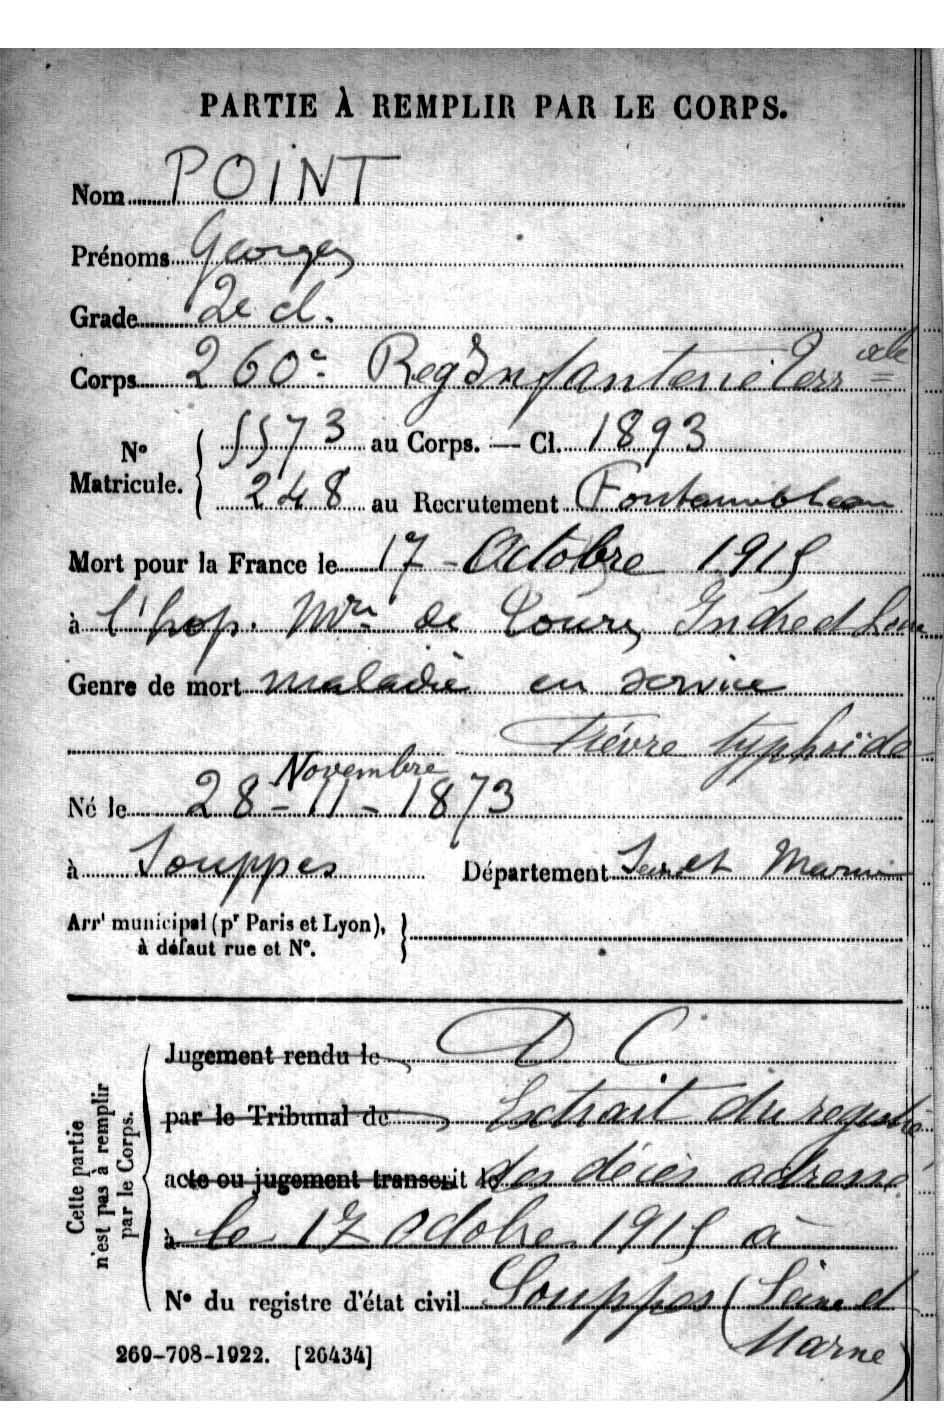 PARTIE À REMPLIR PAR LE CORPS.
Nom POINT
Prénoms Georges
Grade 2e cl.
Corps 260e Reg d'Infanterie Terr ale
N° Matricule. { 5573 au Corps. — Cl. 1893
248 au Recrutement Fontainebleau
Mort pour la France le 17 - Octobre 1915
à l'hop. Mre de Tours, Indre et Loire
Genre de mort maladie en service
Fièvre typhoïde
Novembre
Né le 28 - 11 - 1873
à Souppes Département Seine et Marne
Arrt municipal (pr Paris et Lyon),
à défaut rue et N°.
Cette partie n'est pas à remplir par le Corps.
Jugement rendu le D C
par le Tribunal de Extrait du registre
acte ou jugement transcrit le des décès adressé
à le 17 Octobre 1915 à
N° du registre d'état civil Souppes (Seine et
Marne)
269-708-1922. [26434]